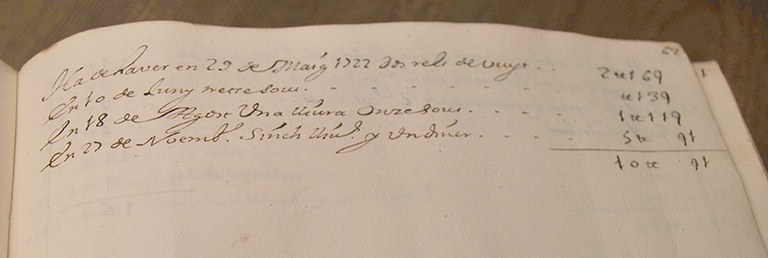 Ha de haver en 29 de Maig 1722 dos rals de vuyt . . 2 tt 16 9
En 10 de Juny tretse sous . . . . . tt 13 9
En 18 de Agost Una lliura Onze sous . . . . 1 tt 11 9
En 27 de Noemb.^e Sinch lliu.^s y un diner . . . . 5 tt 91
10 tt 91